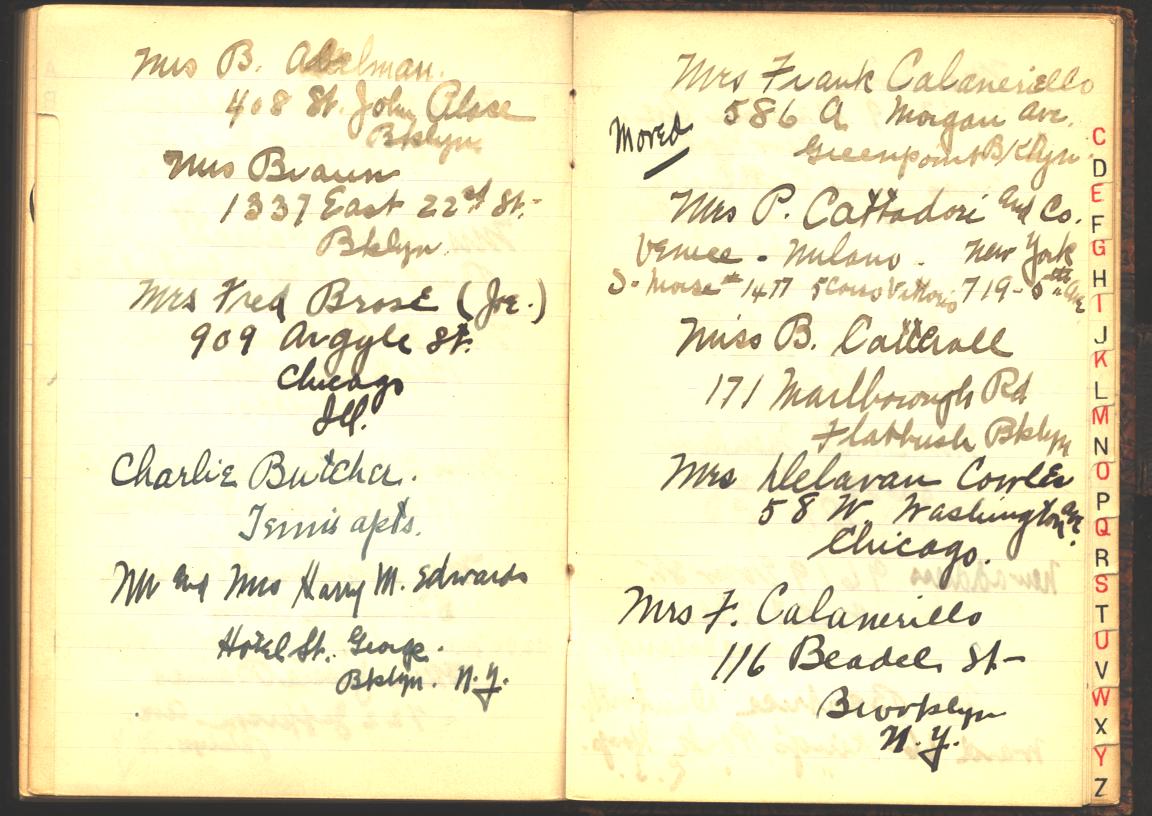 Mrs B. Adelman.
408 St. John Place
Bklyn
Mrs Braun
1337 East 22nd St.-
Bklyn.
Mrs Fred Brose (Joe.)
909 Argyle St.
Chicago
Ill.
Charlie Butcher.
Tennis apts.
Mr and Mrs Harry M. Edwards
Hotel St. George.
Bklyn. N.Y.
Mrs Frank Calaneriello
586 A Morgan Ave.
Moved
Greenpoint Bklyn.
Mrs P. Cattadori and Co.
Venice - Milano. New York
S. Moise # 1477 5 Corso Vittorio 719-5th Ave
Miss B. Catterall
171 Marlborough Rd
Flatbush Bklyn
Mrs Delavan Cowles
58 W. Washington Ave.
Chicago.
Mrs F. Calanerillo
116 Beadel St-
Brooklyn
N.Y.
C
D
E
F
G
H
I
J
K
L
M
N
O
P
Q
R
S
T
U
V
W
X
Y
Z